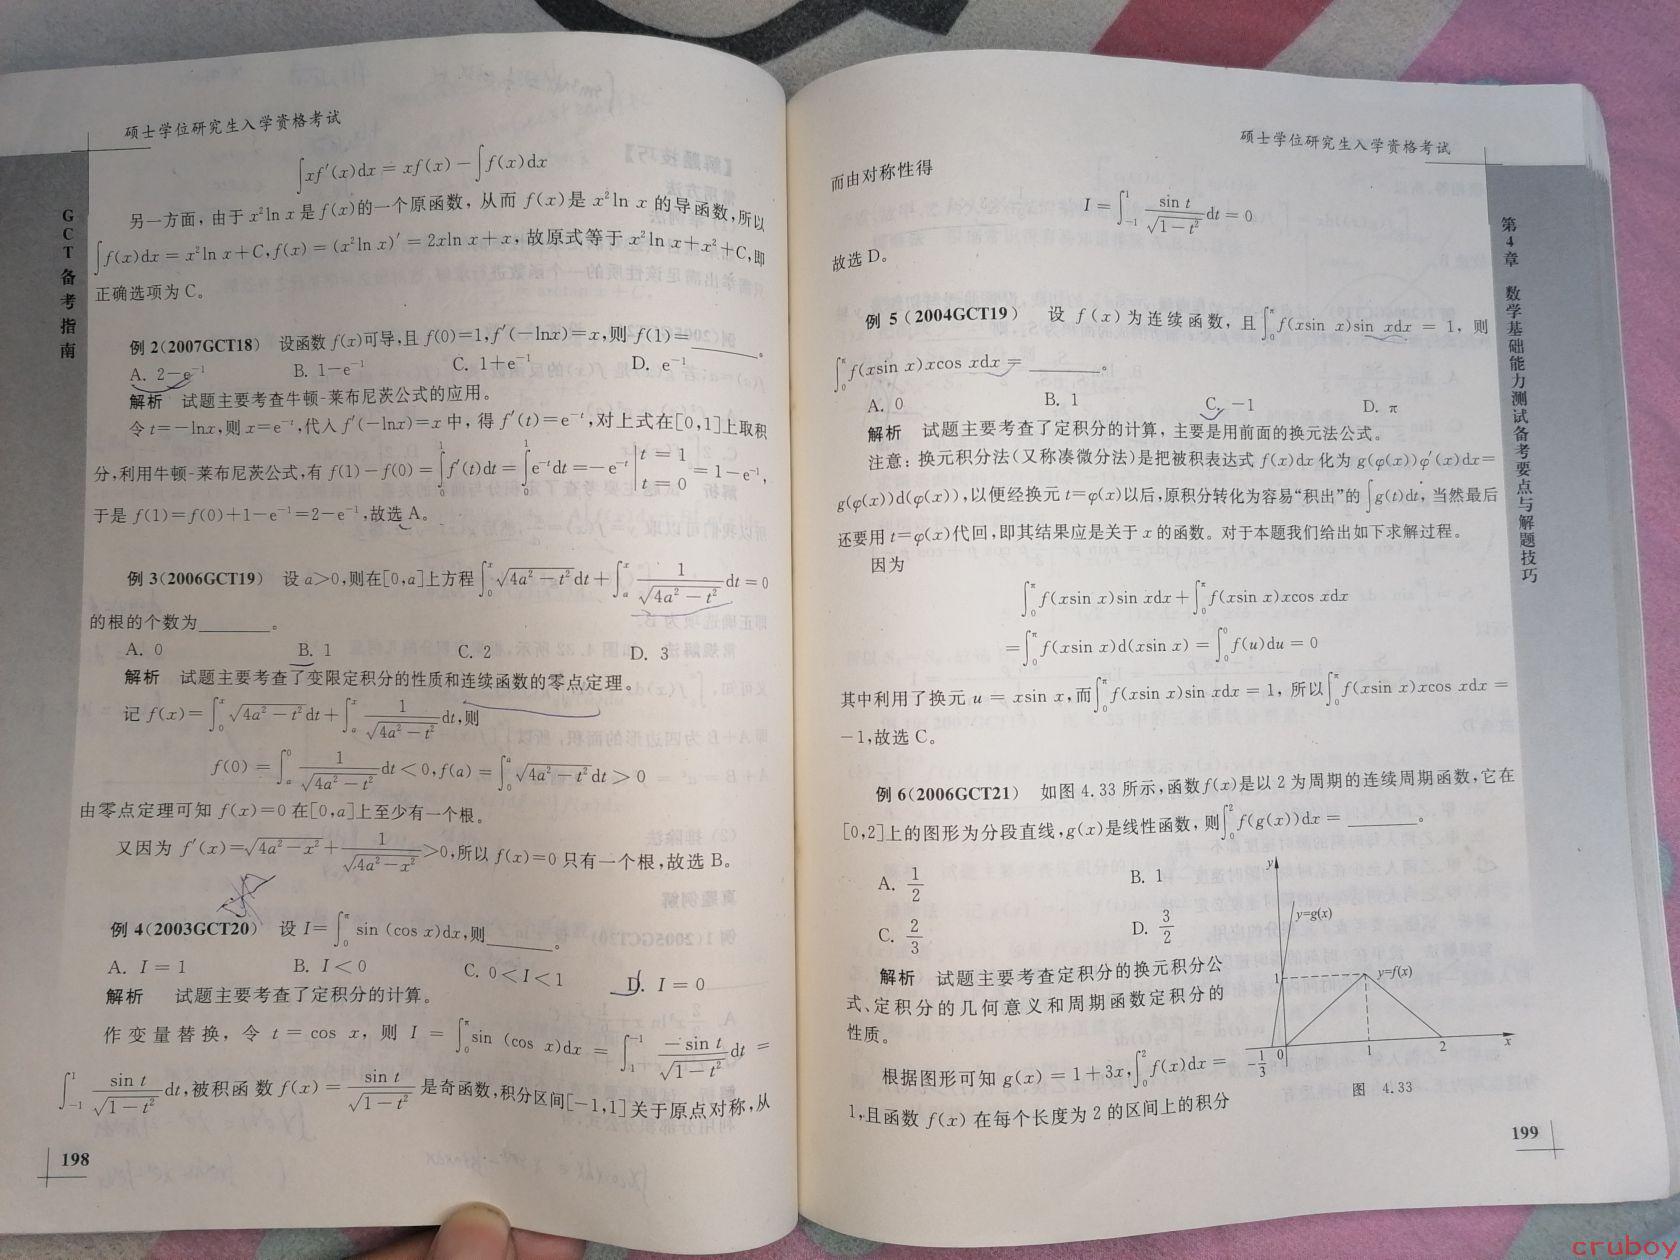 硕士学位研究生入学资格考试
GCT备考指南
∫xf′(x)dx = xf(x) − ∫f(x)dx
另一方面，由于 x²ln x 是 f(x)的一个原函数，从而 f(x)是 x²ln x 的导函数，所以
∫f(x)dx = x²ln x+C, f(x) = (x²ln x)′ = 2xln x+x，故原式等于 x²ln x+x²+C，即
正确选项为 C。
例 2(2007GCT18) 设函数 f(x)可导，且 f(0)=1, f′(−lnx)=x，则 f(1)=______。
A. 2−e⁻¹ B. 1−e⁻¹ C. 1+e⁻¹ D. e⁻¹
解析 试题主要考查牛顿-莱布尼茨公式的应用。
令 t=−lnx，则 x=e⁻ᵗ，代入 f′(−lnx)=x 中，得 f′(t)=e⁻ᵗ，对上式在[0,1]上取积
分，利用牛顿-莱布尼茨公式，有 f(1)−f(0) = ∫₀¹f′(t)dt = ∫₀¹e⁻ᵗdt = −e⁻ᵗ |t=1 t=0 = 1−e⁻¹，
于是 f(1)=f(0)+1−e⁻¹=2−e⁻¹，故选 A。
例 3(2006GCT19) 设 a>0，则在[0,a]上方程 ∫₀ˣ √(4a²−t²) dt + ∫ₐˣ 1/√(4a²−t²) dt = 0
的根的个数为______。
A. 0 B. 1 C. 2 D. 3
解析 试题主要考查了变限定积分的性质和连续函数的零点定理。
记 f(x) = ∫₀ˣ √(4a²−t²) dt + ∫ₐˣ 1/√(4a²−t²) dt，则
f(0) = ∫ₐ⁰ 1/√(4a²−t²) dt < 0, f(a) = ∫₀ᵃ √(4a²−t²) dt > 0
由零点定理可知 f(x)=0 在[0,a]上至少有一个根。
又因为 f′(x)=√(4a²−x²) + 1/√(4a²−x²) >0，所以 f(x)=0 只有一个根，故选 B。
例 4(2003GCT20) 设 I=∫₀^π sin (cos x)dx，则______。
A. I=1 B. I<0 C. 0<I<1 D. I=0
解析 试题主要考查了定积分的计算。
作变量替换，令 t = cos x，则 I = ∫₀^π sin (cos x)dx = ∫₁⁻¹ −sin t/√(1−t²) dt =
∫₋₁¹ sin t/√(1−t²) dt，被积函数 f(x) = sin t/√(1−t²) 是奇函数，积分区间[−1,1]关于原点对称，从
198
硕士学位研究生入学资格考试
第4章 数学基础能力测试备考要点与解题技巧
而由对称性得
I = ∫₋₁¹ sin t/√(1−t²) dt = 0
故选 D。
例 5(2004GCT19) 设 f(x)为连续函数，且 ∫₀^π f(xsin x)sin xdx = 1，则
∫₀^π f(xsin x)xcos xdx = ______。
A. 0 B. 1 C. −1 D. π
解析 试题主要考查了定积分的计算，主要是用前面的换元法公式。
注意：换元积分法(又称凑微分法)是把被积表达式 f(x)dx 化为 g(φ(x))φ′(x)dx=
g(φ(x))d(φ(x))，以便经换元 t=φ(x)以后，原积分转化为容易“积出”的 ∫g(t)dt，当然最后
还要用 t=φ(x)代回，即其结果应是关于 x 的函数。对于本题我们给出如下求解过程。
因为
∫₀^π f(xsin x)sin xdx + ∫₀^π f(xsin x)xcos xdx
= ∫₀^π f(xsin x)d(xsin x) = ∫₀⁰ f(u)du = 0
其中利用了换元 u = xsin x，而 ∫₀^π f(xsin x)sin xdx = 1，所以 ∫₀^π f(xsin x)xcos xdx =
−1，故选 C。
例 6(2006GCT21) 如图 4.33 所示，函数 f(x)是以 2 为周期的连续周期函数，它在
[0,2]上的图形为分段直线，g(x)是线性函数，则 ∫₀² f(g(x))dx = ______。
A. 1/2 B. 1
C. 2/3 D. 3/2
解析 试题主要考查定积分的换元积分公
式、定积分的几何意义和周期函数定积分的
性质。
根据图形可知 g(x) = 1+3x, ∫₀² f(x)dx =
1，且函数 f(x) 在每个长度为 2 的区间上的积分
y
y=g(x)
1
y=f(x)
−1/3 0 1 2 x
图 4.33
199
cruboy